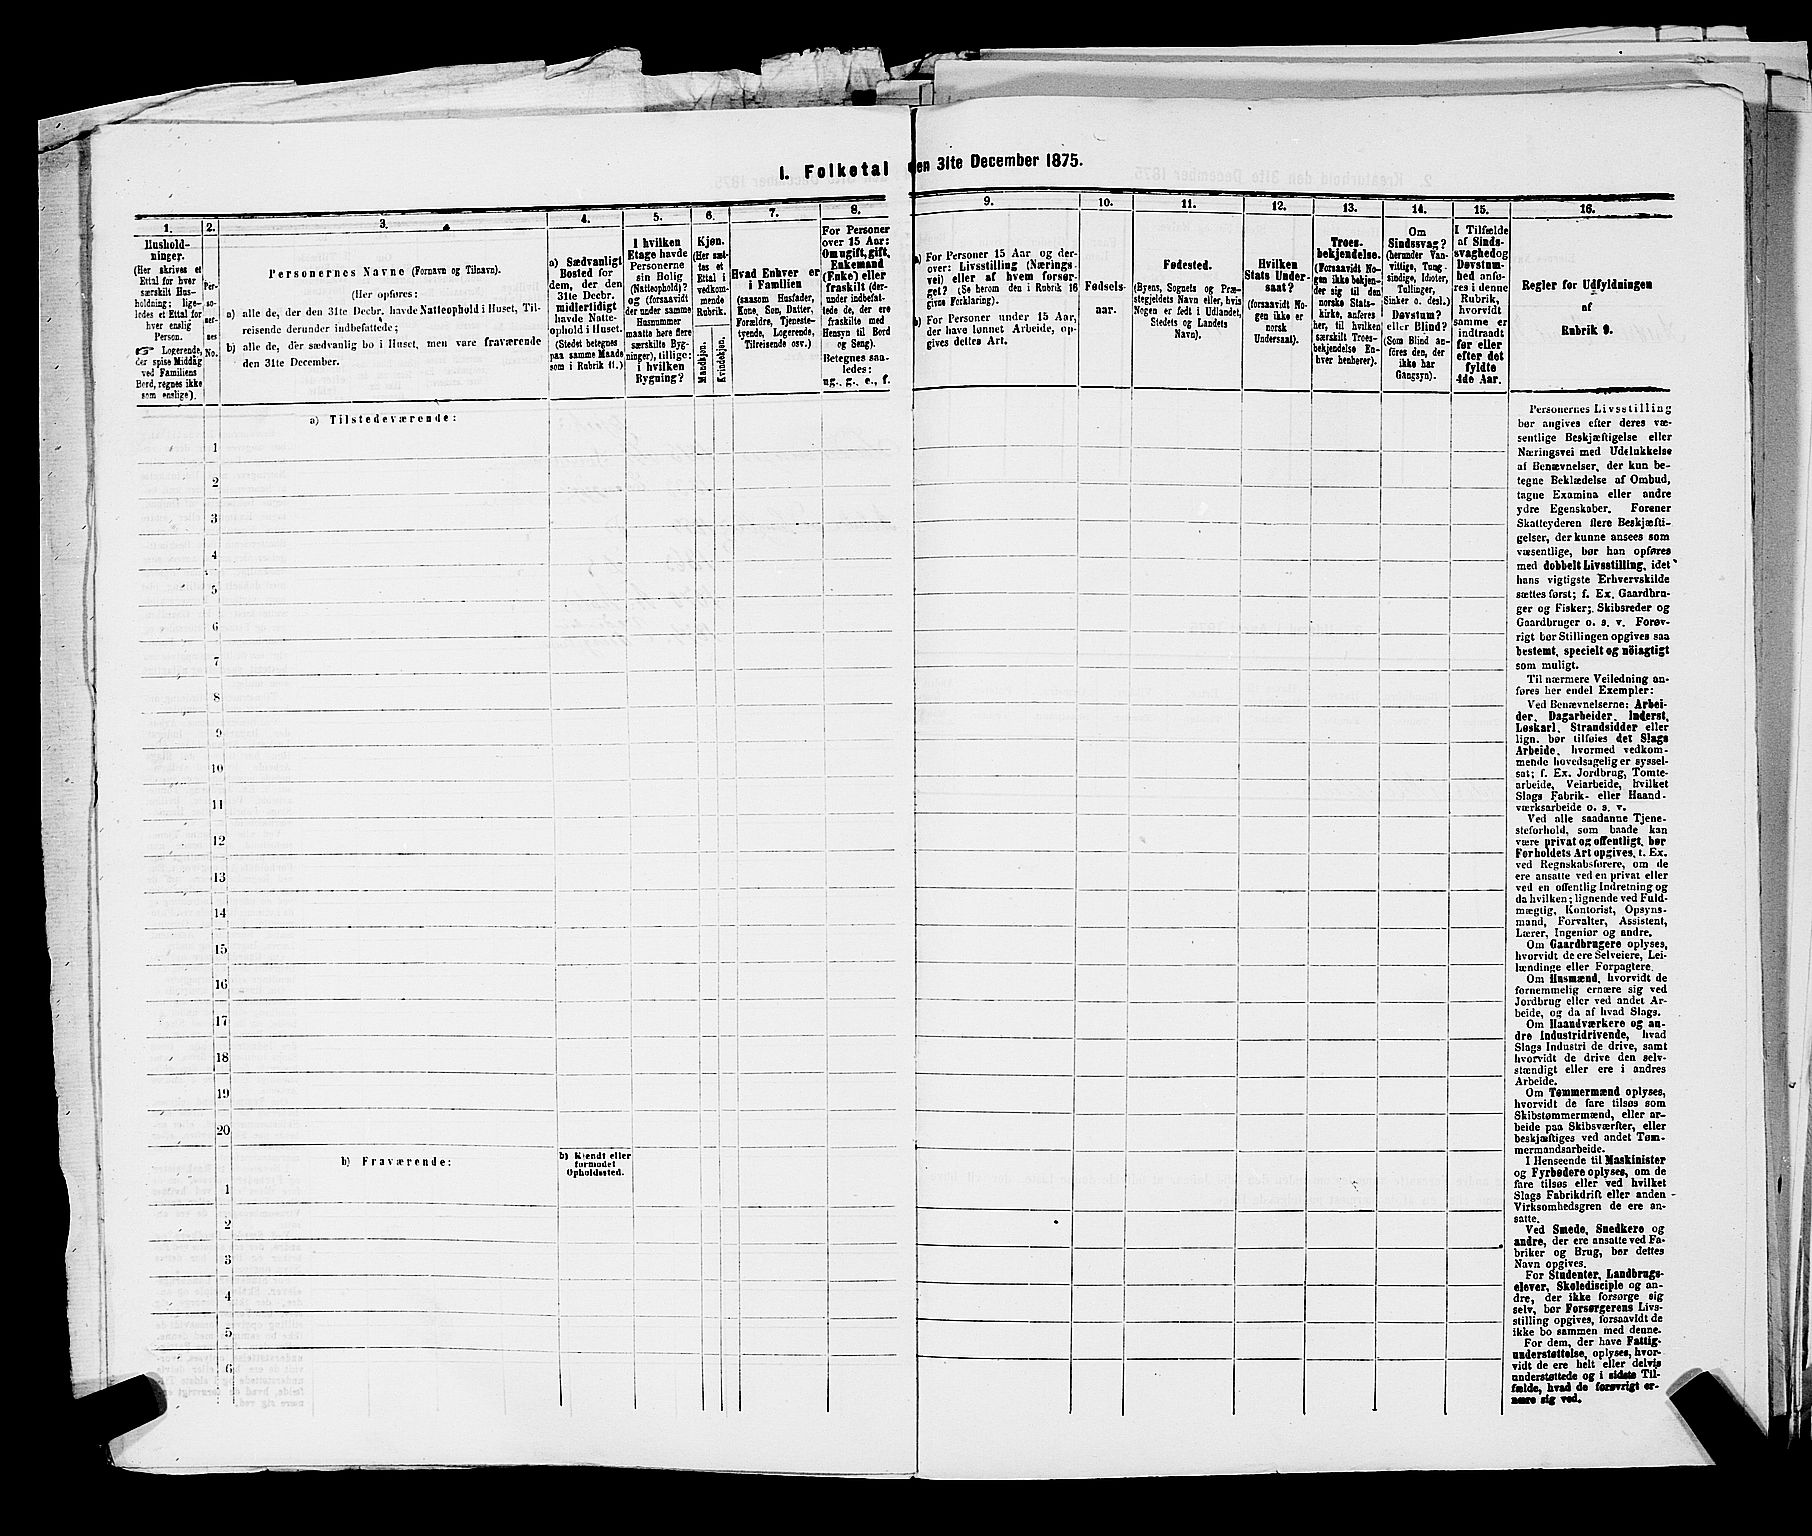 1. Folketal den 31te December 1875.
1.
Hushold-
ninger.
(Her skrives et
Ettal for hver
særskilt Hus-
holdning; lige-
ledes et Ettal for
hver enslig
Person.
☞ Logerende,
der spise Middag
ved Familiens
Bord, regnes ikke
som enslige).
2.
Per-
so-
ner-
nes
No.
3.
Personernes Navne (Fornavn og Tilnavn).
(Her opføres:
a) alle de, der den 31te Decbr. havde Natteophold i Huset, Til-
reisende derunder indbefattede;
b) alle de, der sædvanlig bo i Huset, men vare fraværende
den 31te December.
4.
a) Sædvanligt
Bosted for
dem, der den
31te Decbr.
midlertidigt
havde Natte-
ophold i Huset.
(Stedet betegnes
paa samme Maade
som i Rubrik 11.)
5.
I hvilken
Etage havde
Personerne
sin Bolig
(Natteophold)?
og (forsaavidt
der under samme
Husnummer
maatte høre flere
særskilte Byg-
ninger), tillige:
i hvilken
Bygning?
6.
Kjøn.
(Her sæt-
tes et
Ettal i
vedkom-
mende
Rubrik.
Mandkjøn.
Kvindekjøn.
7.
Hvad Enhver er
i Familien
(saasom Husfader,
Kone, Søn, Datter,
Forældre, Tjeneste-
tyende, Logerende,
Tilreisende osv.)
8.
For Personer
over 15 Aar:
Om ugift, gift,
Enkemand
(Enke) eller
fraskilt (der-
under indbefat-
tede de, der
ere fraskilte med
Hensyn til Bord
og Seng).
Betegnes saa-
ledes:
ug., g., e., f.
9.
a) For Personer 15 Aar og der-
over: Livsstilling (Nærings-
vei) eller af hvem forsør-
get? (Se herom den i Rubrik 16
givne Forklaring).
b) For Personer under 15 Aar,
der have lønnet Arbeide, op-
gives dettes Art.
10.
Fødsels-
aar.
11.
Fødested.
(Byens, Sognets og Præ-
stegjeldets Navn eller, hvis
Nogen er født i Udlandet,
Stedets og Landets
Navn).
12.
Hvilken
Stats Under-
saat?
(forsaavidt No-
gen ikke er
norsk
Undersaat).
13.
Troes-
bekjendelse.
(Forsaavidt No-
gen ikke bekjen-
der sig til den
norske Stats-
kirke, anføres
her, til hvilken
særskilt Troes-
bekjendelse En-
hver henhører).
14.
Om
Sindssvag?
(herunder Van-
vittige, Tung-
sindige, Idioter,
Tullinger,
Sinker o. desl.)
Døvstum?
eller Blind?
(Som Blind an-
føres den, der
ikke har
Gangsyn).
15.
I Tilfælde
af Sinds-
svaghed og
Døvstum-
hed anfø-
res i denne
Rubrik,
hvorvidt
samme er
indtraadt
før eller
efter det
fyldte
4de Aar.
16.
Regler for Udfyldningen
af
Rubrik 9.
a) Tilstedeværende:
1
2
3
4
5
6
7
8
9
10
11
12
13
14
15
16
17
18
19
20
b) Fraværende:
b) Kjendt eller
formodet
Opholdssted.
1
2
3
4
5
6
Personernes Livsstilling
bør angives efter deres væ-
sentlige Beskjæftigelse eller
Næringsvei med Udelukkelse
af Benævnelser, der kun be-
tegne Beklædelse af Ombud,
tagne Examina eller andre
ydre Egenskaber. Forener
Skatteyderen flere Beskjæfti-
gelser, der kunne ansees som
væsentlige, bør han opføres
med dobbelt Livsstilling, idet
hans vigtigste Erhvervskilde
sættes først; f. Ex. Gaardbru-
ger og Fisker; Skibsreder og
Gaardbruger o. s. v. Forøv-
rigt bør Stillingen opgives saa
bestemt, specielt og nöiagtigt
som muligt.
Til nærmere Veiledning an-
føres her endel Exempler:
Ved Benævnelserne: Arbei-
der, Dagarbeider, Inderst,
Løskarl, Strandsidder eller
lign. bør tilføies det Slags
Arbeide, hvormed vedkom-
mende hovedsagelig er syssel-
sat; f. Ex. Jordbrug, Tomte-
arbeide, Veiarbeide, hvilket
Slags Fabrik- eller Haand-
værksarbeide o. s. v.
Ved alle saadanne Tjene-
steforhold, som baade kan
være privat og offentligt, bør
Forholdets Art opgives, t. Ex.
ved Regnskabsførere, om de
ere ansatte ved en privat eller
ved en offentlig Indretning og
da hvilken; lignende ved Fuld-
mægtig, Kontorist, Opsyns-
mand, Forvalter, Assistent,
Lærer, Ingeniør og andre.
Om Gaardbrugere oplyses,
hvorvidt de ere Selveiere, Lei-
lændinge eller Forpagtere.
Om Husmænd, hvorvidt de
fornemmelig ernære sig ved
Jordbrug eller ved andet Ar-
beide, og da af hvad Slags.
Om Haandværkere og an-
dre Industridrivende, hvad
Slags Industri de drive, samt
hvorvidt de drive den selv-
stændigt eller ere i andres
Arbeide.
Om Tømmermænd oplyses,
hvorvidt de fare tilsøs som
Skibstømmermænd, eller ar-
beide paa Skibsværfter, eller
beskjæftiges ved andet Tøm-
mermandsarbeide.
I Henseende til Maskinister
og Fyrbødere oplyses, om de
fare tilsøs eller ved hvilket
Slags Fabrikdrift eller anden
Virksomhedsgren de ere an-
satte.
Ved Smede, Snedkere og
andre, der ere ansatte ved Fa-
briker og Brug, bør dettes
Navn opgives.
For Studenter, Landbrugs-
elever, Skoledisciple og an-
dre, der ikke forsørge sig
selv, bør Forsørgerens Livs-
stilling opgives, forsaavidt de
ikke bo sammen med denne.
For dem, der have Fattig-
understøttelse, oplyses, hvor-
vidt de ere helt eller delvis
understøttede og i sidste Til-
fælde, hvad de forøvrigt er-
nære sig ved.